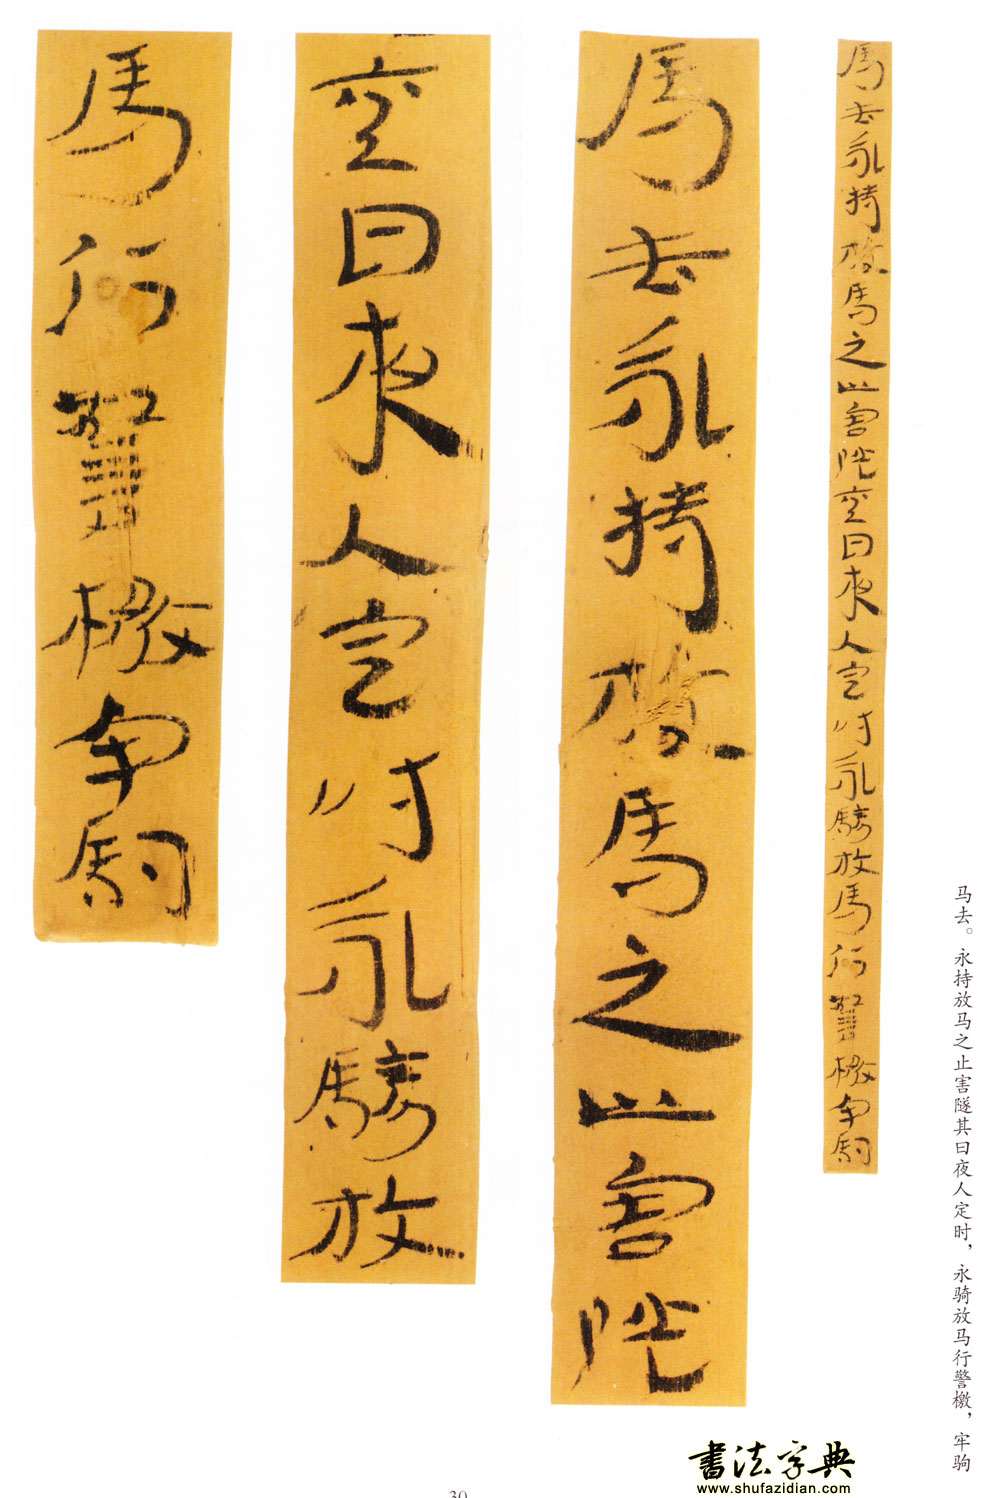 馬去永持放馬之止害隧其日夜人定时永騎放馬行警檄牢駒
马去。永持放马之止害隧其曰夜人定时，永骑放马行警檄，牢驹
馬去永持放馬之止害隧
其日夜人定时永騎放
馬行警檄牢駒
30
書法字典
www.shufazidian.com